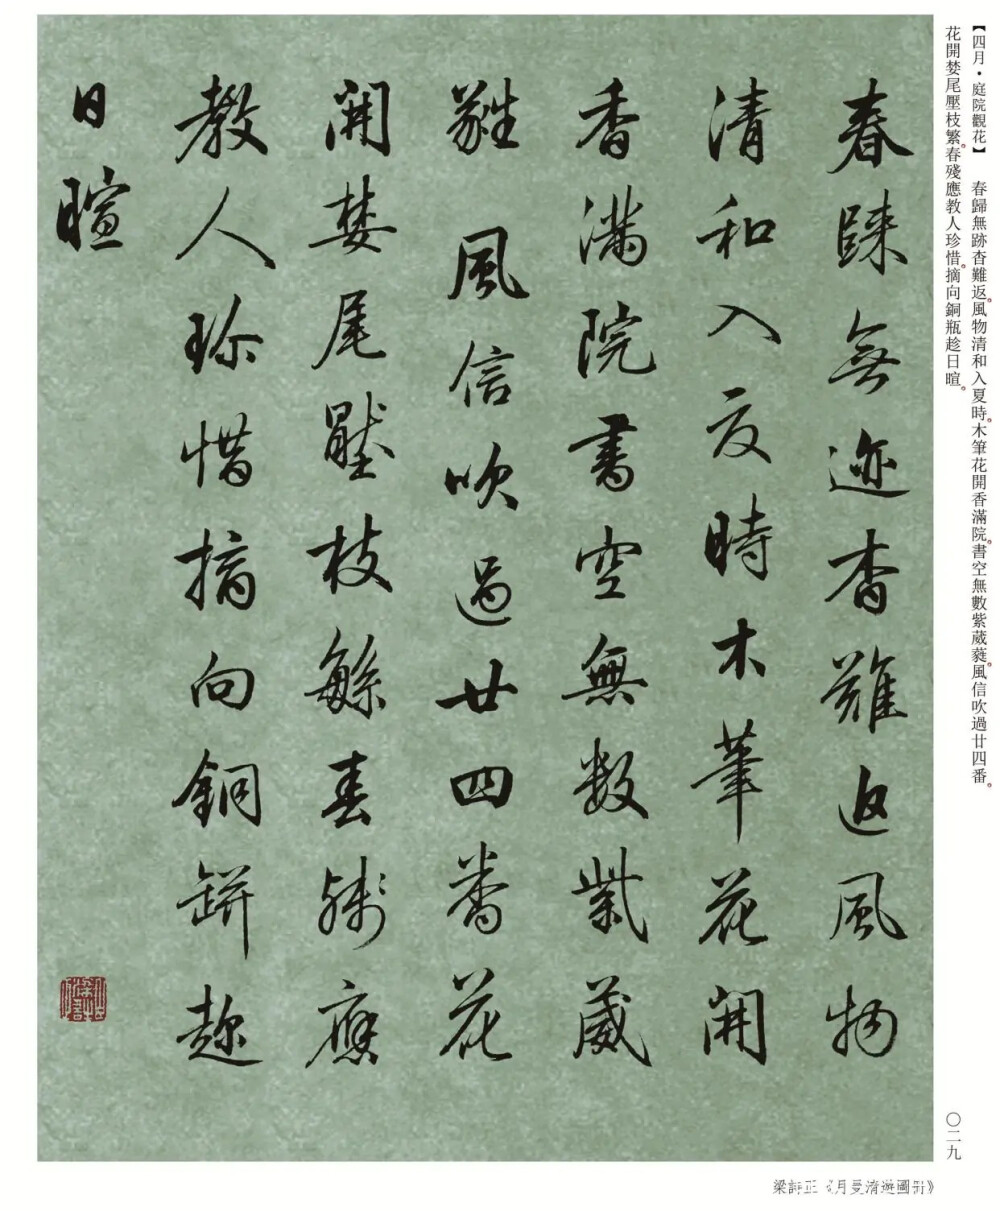 【四月·庭院觀花】 春歸無跡杳難返。風物清和入夏時。木筆花開香滿院。書空無數紫葳蕤。風信吹過廿四番。
花開婪尾壓枝繁。春殘應教人珍惜。摘向銅瓶趁日暄。
春歸無迹杳難返風物
清和入夏時木筆花開
香滿院書空無數紫葳
蕤風信吹過廿四番花
開婪尾壓枝繁春殘應
教人珍惜摘向銅缾趂
日暄
〇二九
梁詩正《月曼清遊圖冊》